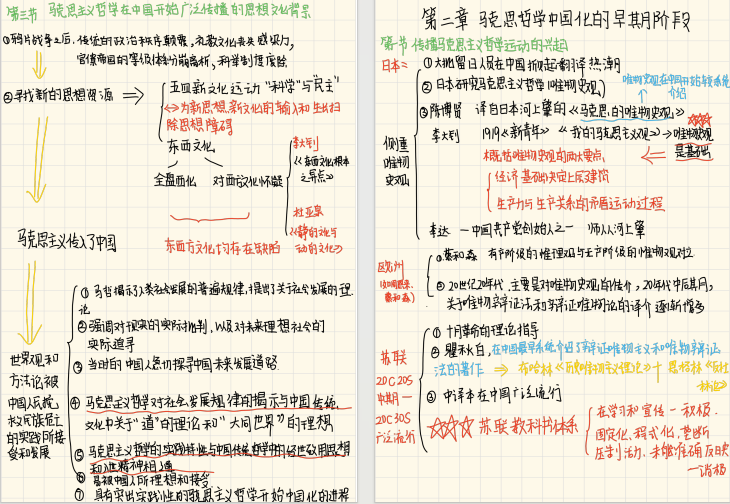 第三节 马克思主义哲学在中国开始广泛传播的思想文化背景
①鸦片战争之后,传统的政治秩序颠覆,礼教文化丧失感染力,
官僚帝国的等级体制分崩离析,科举制度废除
②寻找新的思想资源 ⇒
五四新文化运动 "科学"与"民主"
↔为新思想、新文化的输入和生出扫
除思想障碍
东西文化
全盘西化 对西方文化怀疑
李大钊
《东西文化根本
之异点》
杜亚泉
《静的文化与
动的文化》
东西方文化均存在缺陷
马克思主义传入了中国
世界观和
方法论被
中国人民抗
救民族危亡
的实践所接
受和发展
① 马哲揭示了人类社会发展的普遍规律,提出了关社会发展的理
论
②强调对现实的实际批判,以及对未来理想社会的
实际追寻
③ 当时的中国人急切探寻中国未来发展道路
④ 马克思主义哲学对社会发展规律的揭示与中国传统
文化中关于"道"的理论和"大同世界"的理想
⑤ 马克思主义哲学的实践特性与中国传统哲学中的经世致用思想
和 精神相通
⑥ 易被中国人所理想和接受
⑦ 具有突出实践性的马克思主义哲学开始中国化的进程
第二章 马克思哲学中国化的早其月阶段
第一节 传播马克思主义哲学运动的兴起
日本=
侧重
唯物
史观
①大批留日人员在中国掀起翻译热潮
②日本研究马克思主义哲学(唯物史观)
唯物史观在中国开始较系统
介绍
③陈博贤 译自日本河上肇的《马克思的唯物史观》
李大钊 1919《新青年》《我的马克思主义观》→唯物史观
是基础
概括唯物史观的两大要点
经济基础决定上层建筑
生产力与生产关系的矛盾运动过程
李达 一中国共产党创始人之一 师从河上肇
欧洲
(如周恩来、
蔡和森)
①蔡和森 有产阶级的惟理观与无产阶级的惟物观对立
② 20世纪20年代,主要是对唯物史观的传介,20年代中后其月,
关于唯物辩证法和辩证唯物论的译介逐渐增多
苏联
20C20S
中其月一
20C30S
广泛流行
① 十月革命的理论指导
② 瞿秋白,在中国最早系统介绍了辩证唯物主义和唯物辩证
法的著作 ⇒ 布哈林《历史唯物主义理论》十 恩格斯《反杜
林论》
③ 中译本在中国广泛流行
☆☆☆ 苏联教科书体系
在学习和宣传一积极
固定化、程式化,垄断
压制活力,未能准确反映
一消极